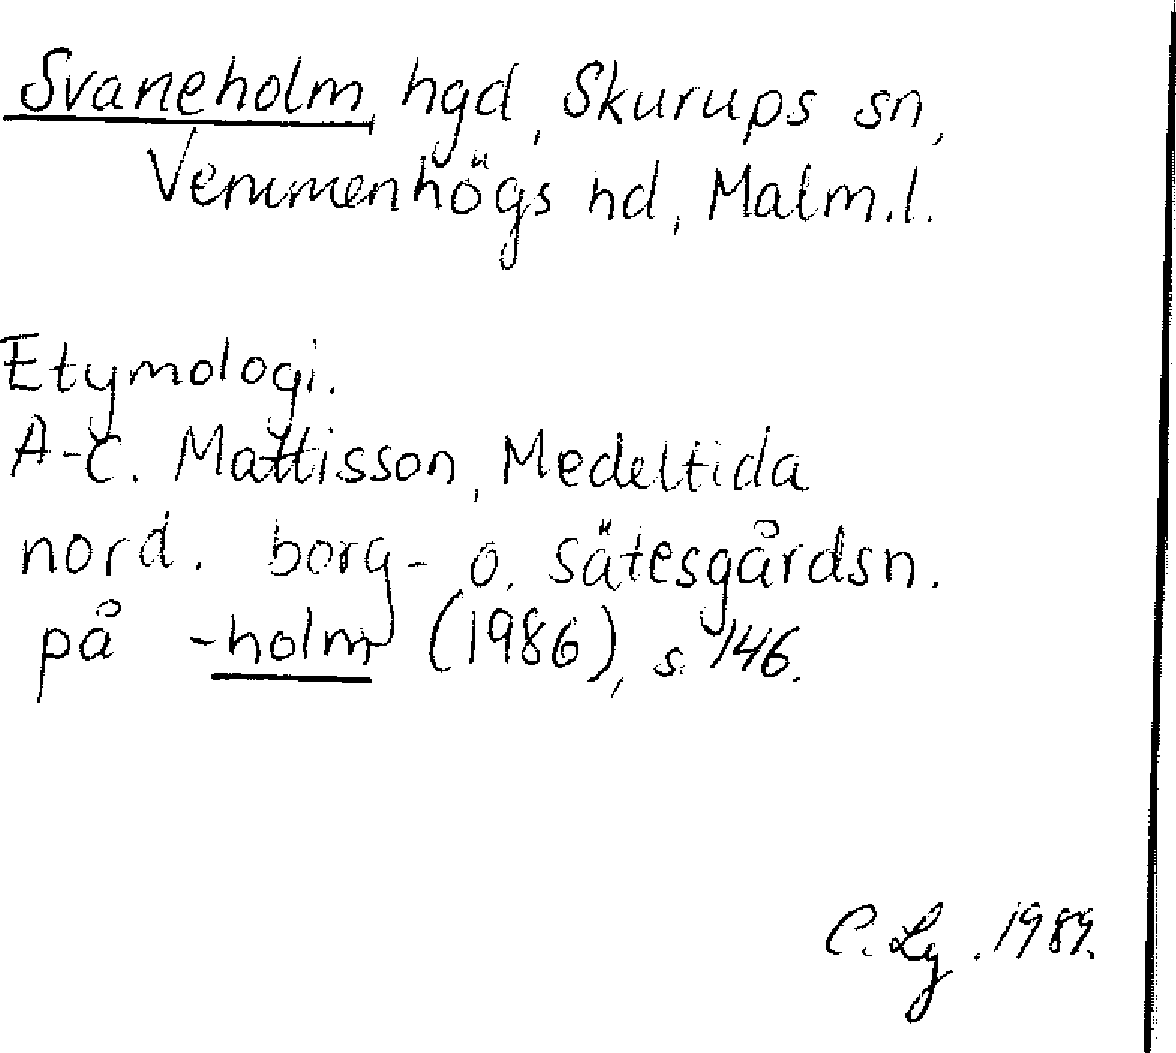 Svaneholm, hgd, Skurups sn,
Vemmenhögs hd, Malm.l.
Etymologi.
A-C. Mattisson, Medeltida
nord. borg- o. sätesgårdsn.
på -holm (1986), s. 146.
C. Lg. 1989.